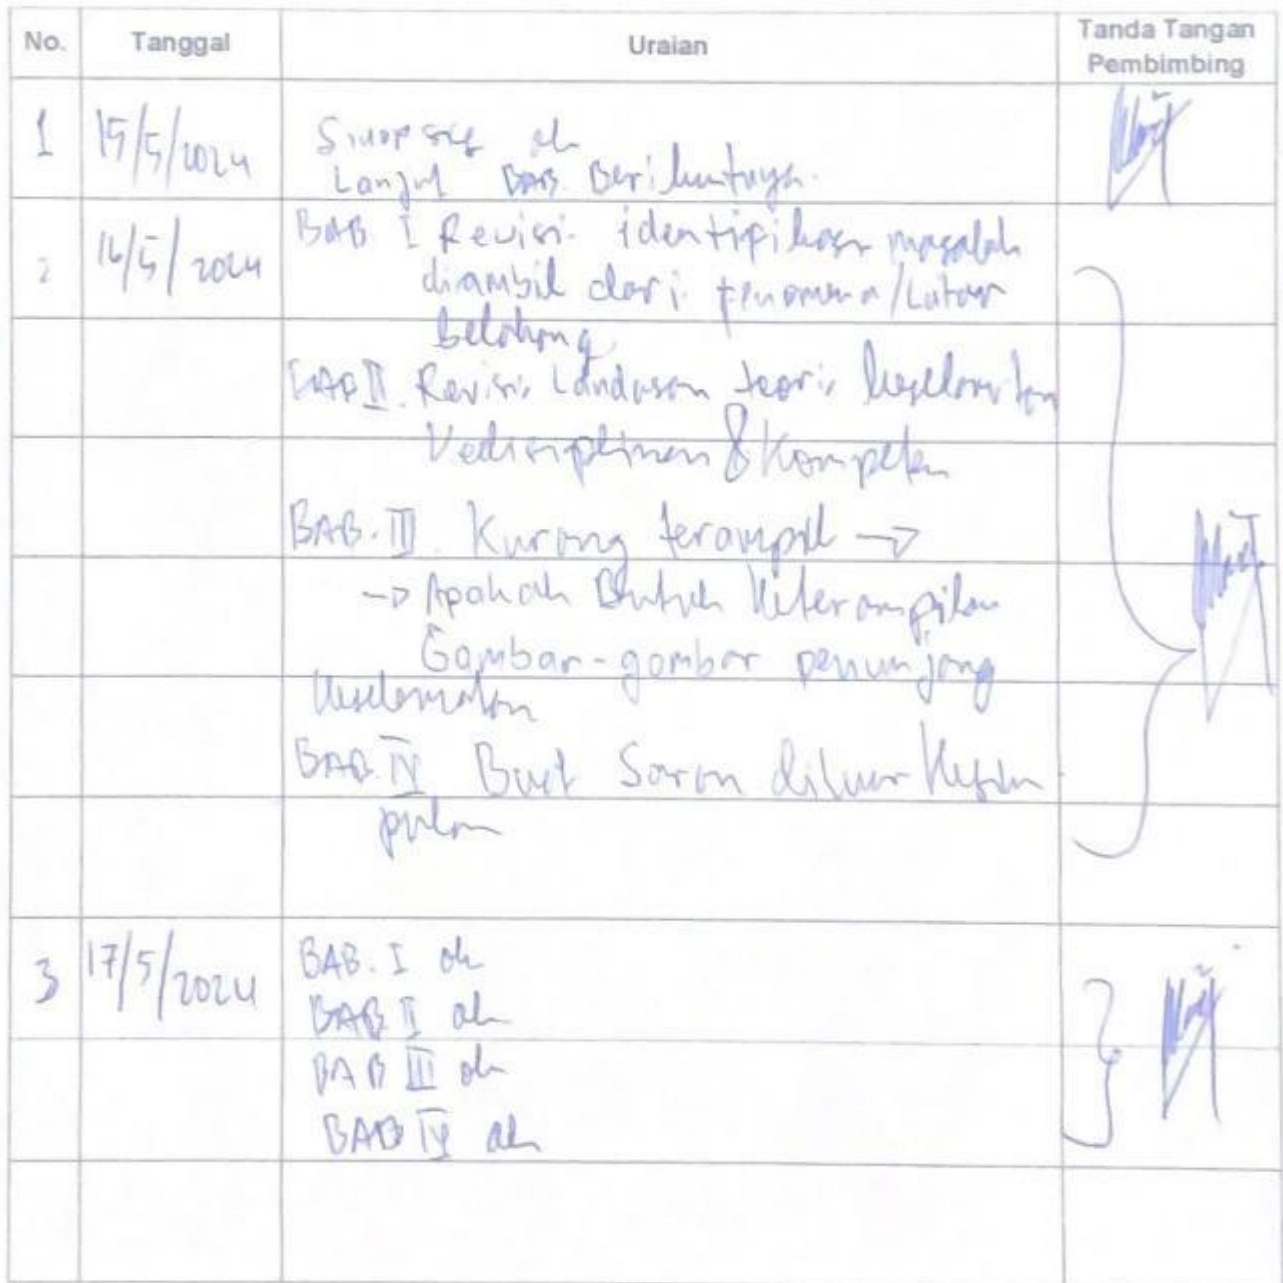 No. Tanggal Uraian Tanda Tangan
Pembimbing
1 15/5/2024 Sinopsis ok
Lanjut BAB. Berikutnya.
2 16/5/2024 BAB I Revisi. identifikasi masalah
diambil dari fenomena/Latar
Belakang
BAB II. Revisi Landasan teori keselamatan
Kedisiplinan & Kompeten
BAB. III. Kurang terampil →
→ Apakah Bentuk Keterampilan
Gambar-gambar penunjang
Keselamatan
BAB. IV Buat Saran diluar Kesim
pulan
3 17/5/2024 BAB. I ok
BAB II ok
BAB III ok
BAB IV ok